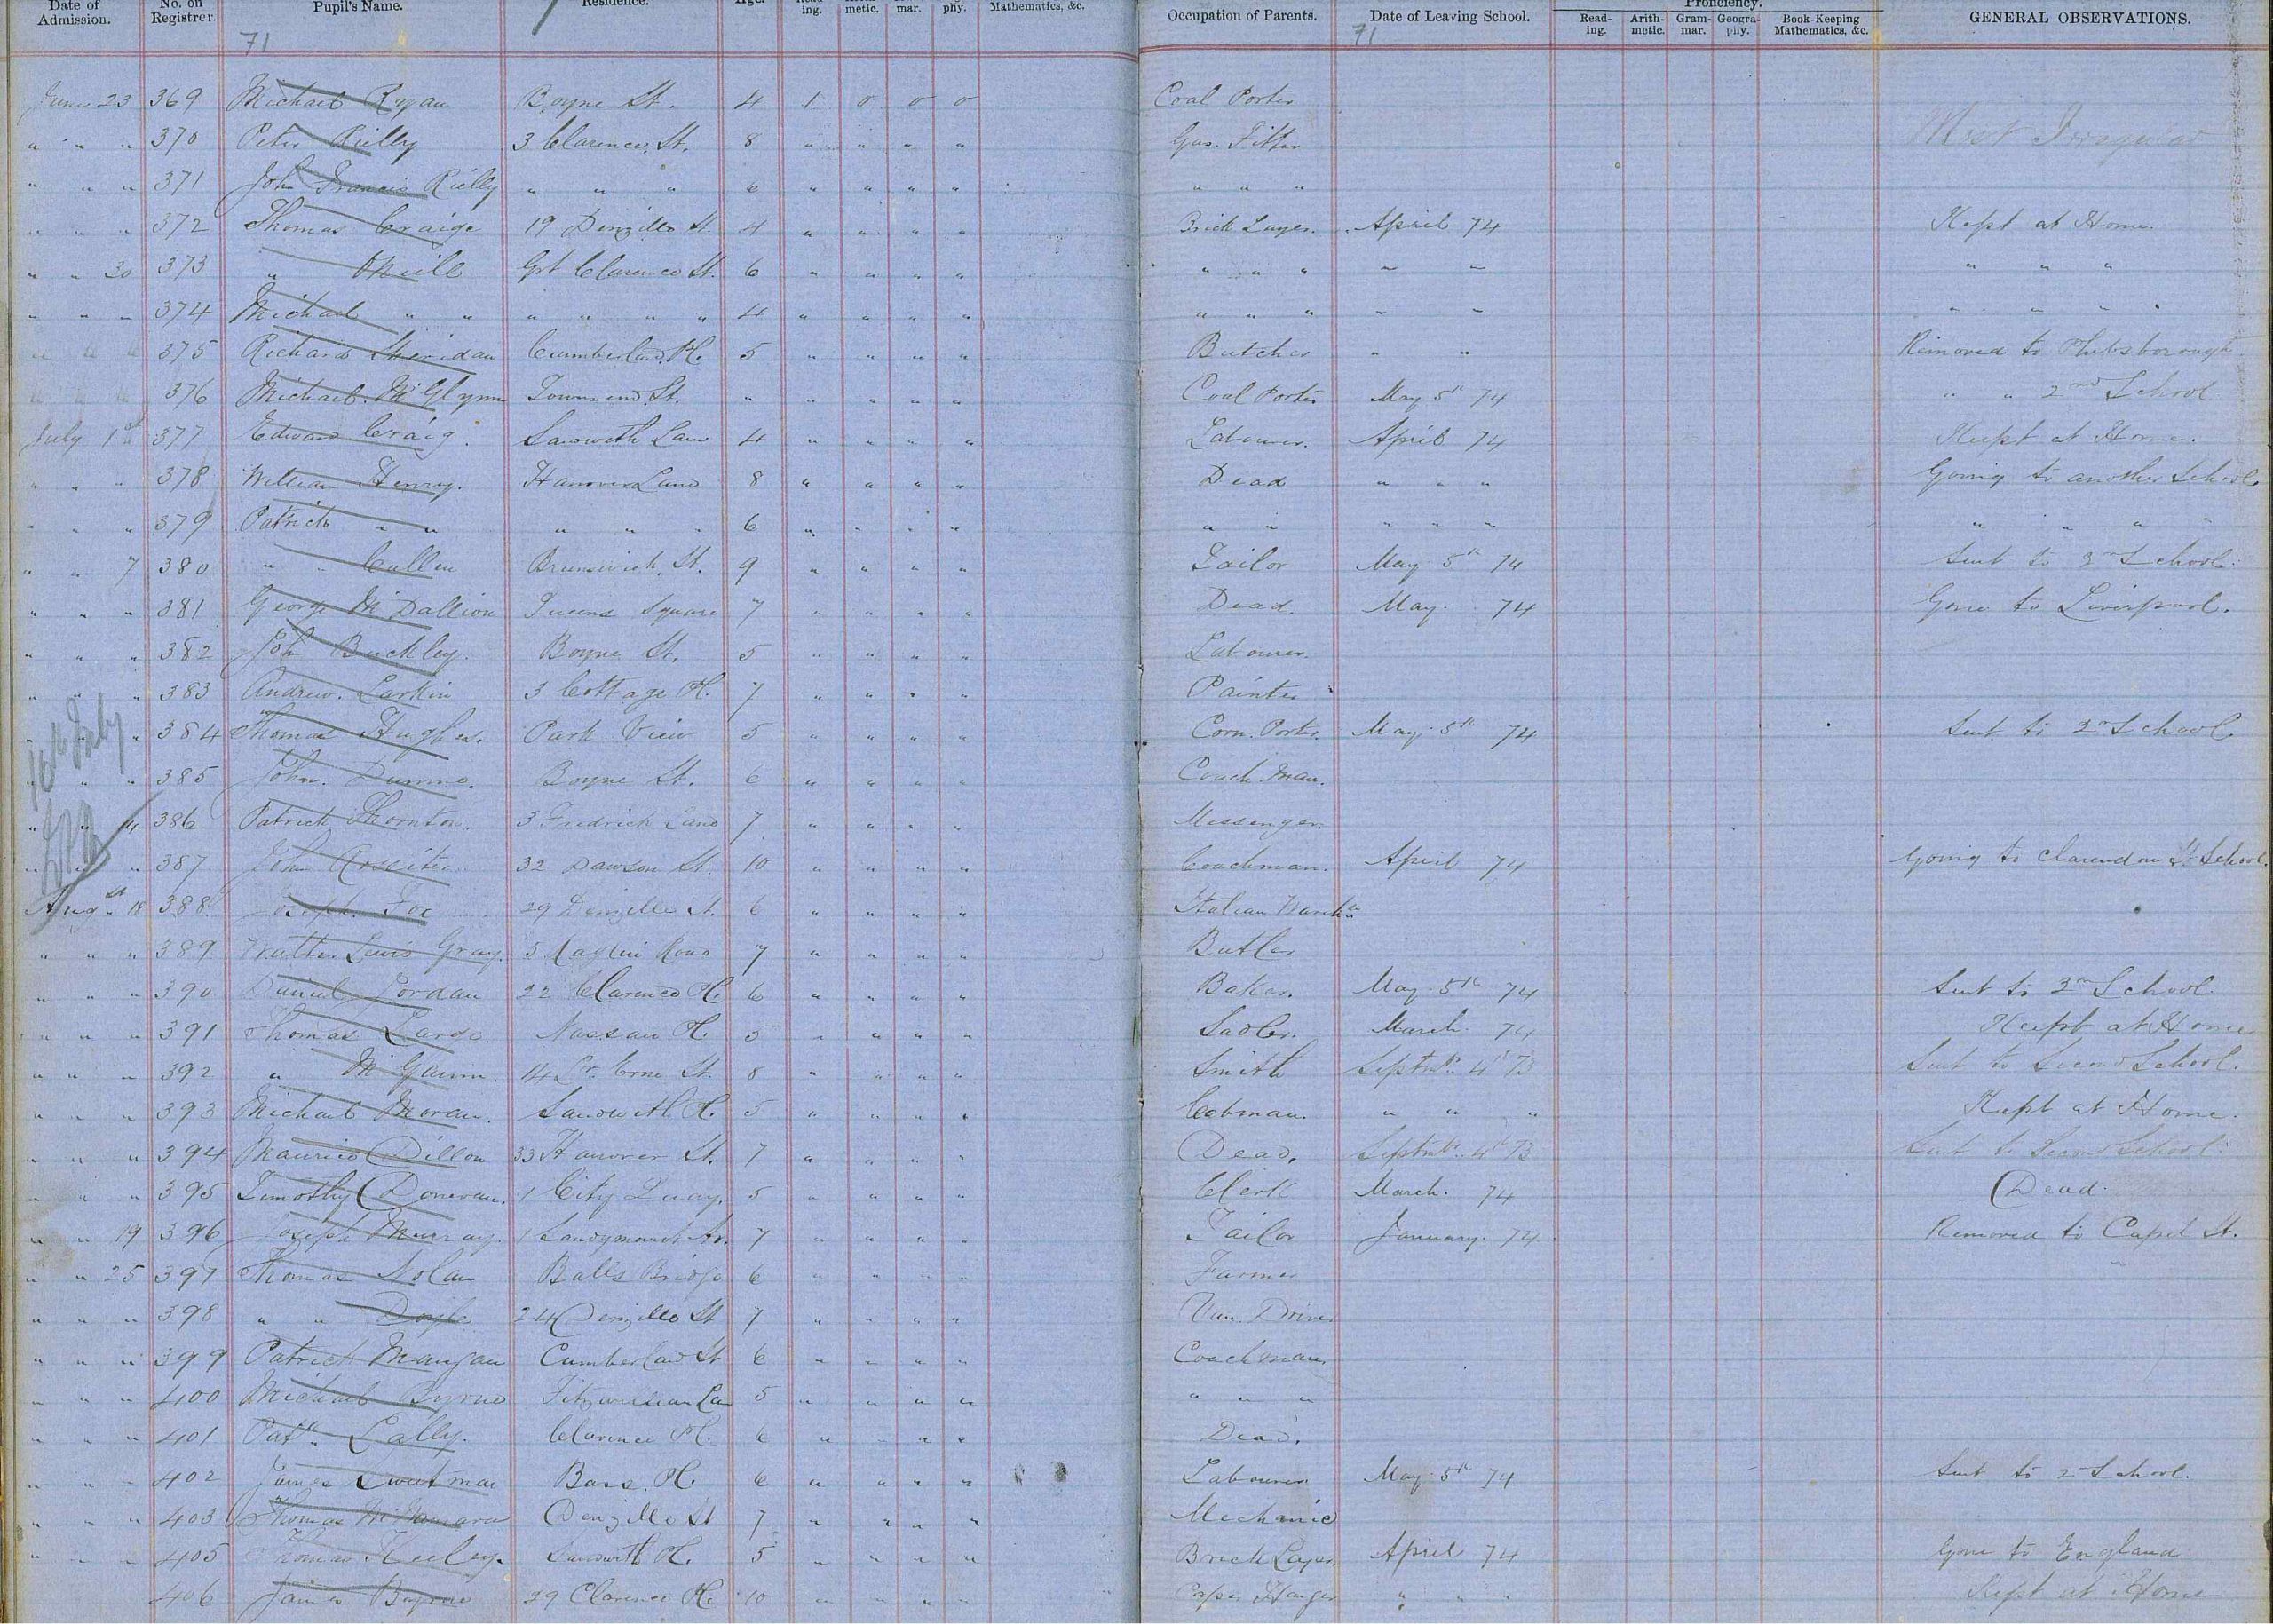 Date of Admission. No. on Registrer. Pupil's Name. Residence. Age. Reading. Arithmetic. Grammar. Geography. Mathematics, &c. Occupation of Parents. Date of Leaving School. Proficiency. Reading. Arithmetic. Grammar. Geography. Book-Keeping Mathematics, &c. GENERAL OBSERVATIONS.
71 71
June 23 369 Michael Ryan Boyne St. 4 1 0 0 0 Coal Porter
" " " 370 Peter Rielly 3 Clarence. St. 8 " " " " Gas. Fitter Most Irregular
" " " 371 John Francis Rielly " " " 6 " " " " " " "
" " " 372 Thomas Craige 19 Denzille St. 4 " " " " Brick Layer. April 74 Kept at Home.
" " 30 373 " Neill Grt Clarence St. 6 " " " " " " " " " " " "
" " " 374 Michael " " " " " " 4 " " " " " " " " " " " " "
" " " 375 Richard Sheridan Cumberland. Pl. 5 " " " " Butcher " " Removed to Phibsborough
" " " 376 Michael. McGlynn Townsend. St. " " " " " Coal Porter May 5th 74 " " 2nd School
July 1st 377 Edward Craig. Sandwith Lane 4 " " " " Labourer. April 74 Kept at Home.
" " " 378 William Henry. Hanover Lane 8 " " " " Dead " " " Going to another School.
" " " 379 Patrick " " " " " 6 " " " " " " " " " " " " "
" " 7 380 " " Cullen Brunswick. St. 9 " " " " Tailor May 5th 74 Sent to School.
" " " 381 George Queens Square 7 " " " " Dead. May. 74 Gone to Liverpool.
" " " 382 Joh Buckley. Boyne St. 5 " " " " Labourer.
" " " 383 Andrew. Larkin 3 Cottage Pl. 7 " " " " Painter
16th July
" " " 384 Thomas Hughes. Park View 5 " " " " Corn. Porter. May 5th 74 Sent to 2n School.
" " " 385 John. Dunne. Boyne St. 6 " " " " Coach. Man.
" " 14 386 Patrick Thornton. 3 Fredrick Lane 7 " " " " Messenger.
" " " 387 John Rossiter 32 Dawson St. 10 " " " " Coachman. April 74 Going to Clarendon St School.
Augst 18 388 Joseph Fox 29 Denzille St. 6 " " " " Italian
" " " 389 Walter Lewis Gray. 5 Road 7 " " " " Butler
" " " 390 Daniel Jordan 22 Clarence Pl. 6 " " " " Baker. May 5th 74 Sent to School.
" " " 391 Thomas Nassau Pl. 5 " " " " Sadler. March. 74 Kept at Home
" " " 392 " 14 Lr. Erne St. 8 " " " " Smith Septmbr 4th 73 Sent to Second School.
" " " 393 Michael Moran. Sandwith Pl. 5 " " " " Cabman. " " " Kept at Home.
" " " 394 Maurice Dillon 33 Hanover St. 7 " " " " Dead. Septmbr. 4th 73 Sent to Second School.
" " " 395 Timothy Donovan. 1 City Quay. 5 " " " " Clerk March. 74 Dead.
" " 19 396 Joseph Murray. 1 Sandymount Av. 7 " " " " Tailor January. 74 Removed to Capel St.
" " 25 397 Thomas Nolan Balls Bridge 6 " " " " Farmer
" " " 398 " " Doyle 24 Denzille St 7 " " " " Van. Driver
" " " 399 Patrick Mangan Cumberland St 6 " " " " Coachman.
" " " 400 Michael Byrne Fitzwilliam Lan 5 " " " " " " "
" " " 401 Patk. Lally. Clarence Pl. 6 " " " " Dead.
" " " 402 James Sweetman Bass. Pl. 6 " " " " Labourer May 5th 74 Sent to 2 School.
" " " 403 Thomas McNamara Denzille St 7 " " " " Mechanic
" " " 405 Thomas Keeley. Sandwith Pl. 5 " " " " Brick Layer. April 74 Gone to England
406 James Byrne 29 Clarence Pl. 10 " " " " Paper Hanger " " " Kept at Home